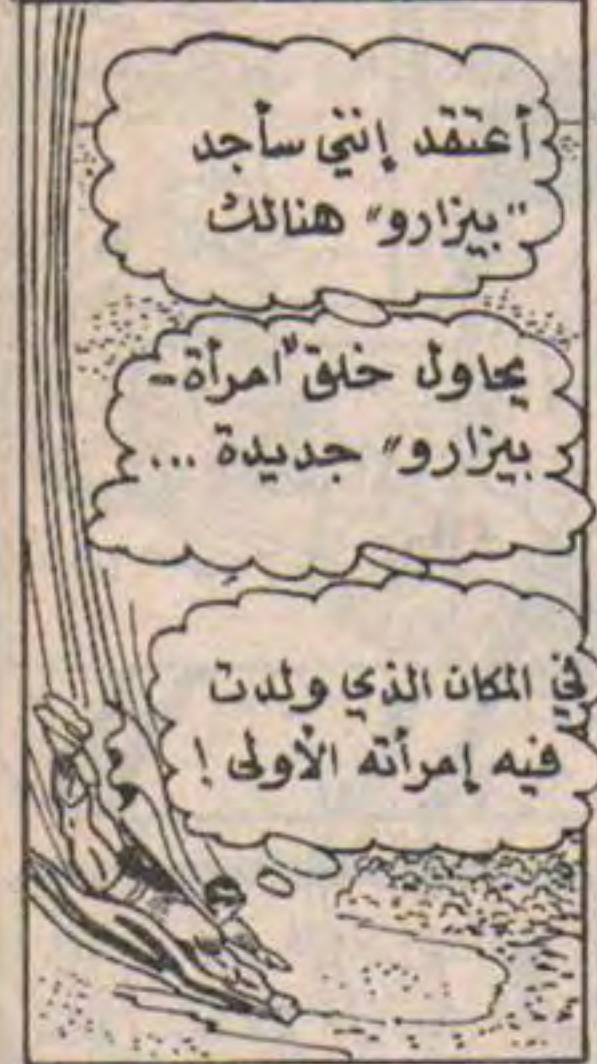 أعتقد إنني سأجد
"بيزارو" هنالك
يحاول خلق "امرأة -
بيزارو" جديدة ...
في المكان الذي ولدت
فيه إمرأته الأولى !